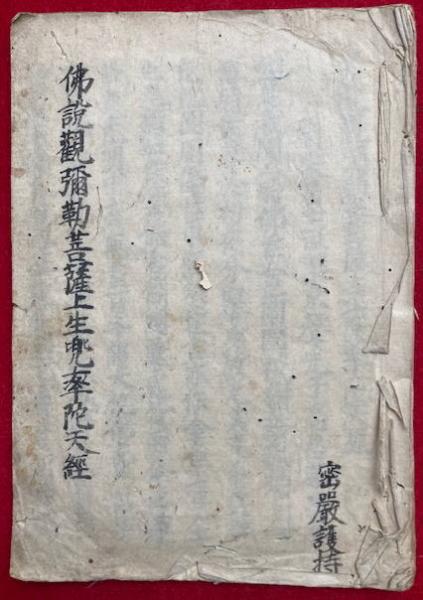 佛說觀彌勒菩薩上生兜率陀天經
密嚴護持